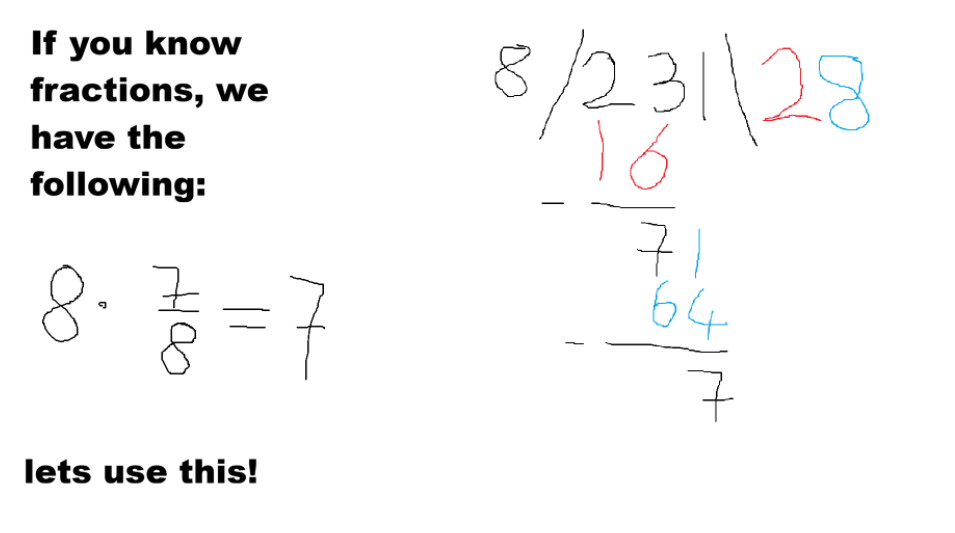 If you know
fractions, we
have the
following:
8 · 7/8 = 7
lets use this!
8 / 231 \ 28
16
-
7 1
64
-
7